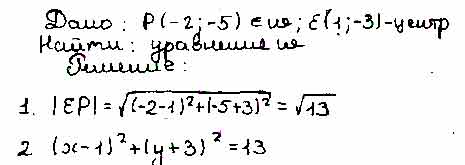 Дано: P(-2;-5) ∈ ω; E(1;-3)-центр
Найти: уравнение ω
Решение:
1. |EP|=√((-2-1)²+(-5+3)²)=√13
2 (x-1)²+(y+3)²=13